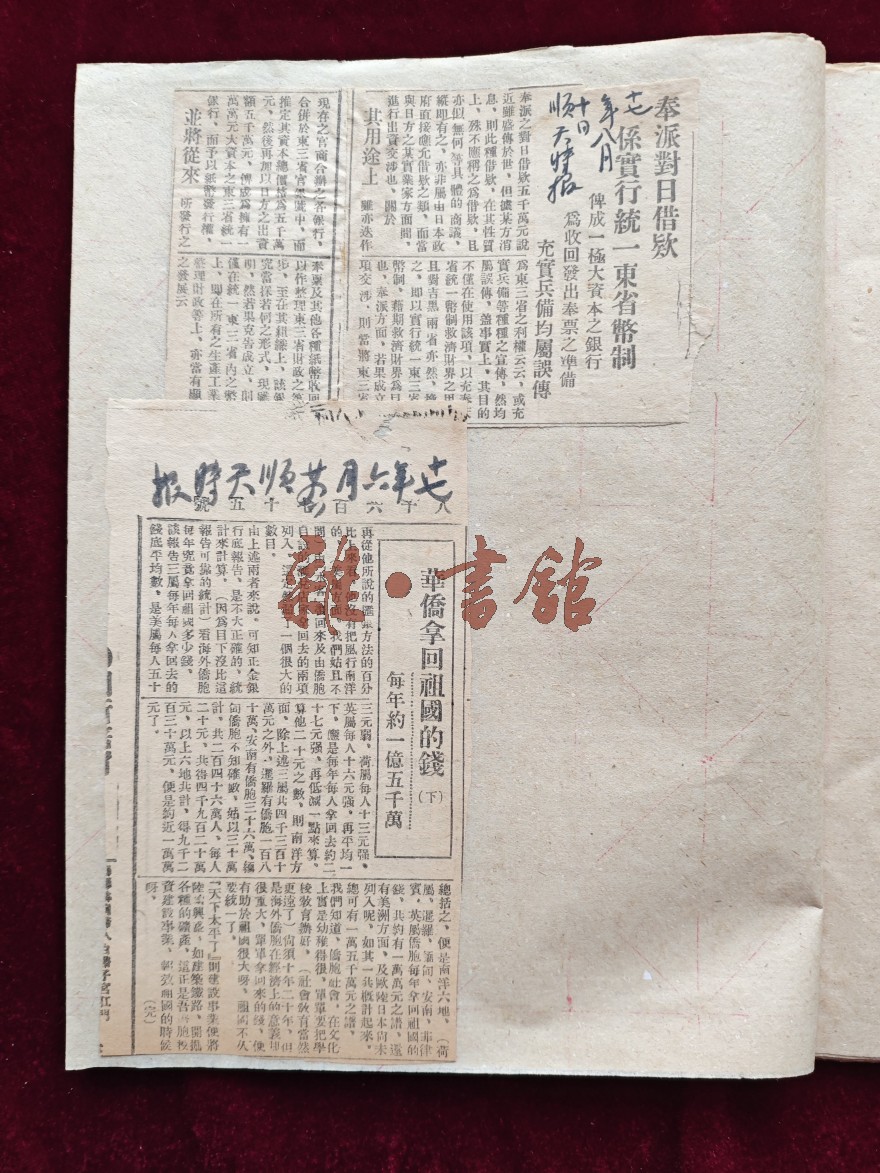 奉派對日借欵
係實行統一東省幣制
俾成一極大資本之銀行
爲收回發出奉票之準備
充實兵備均屬誤傳
十七年八月
十日
順天時報
奉派之對日借欵五千萬元說
近雖盛傳於世、但據某方消
息、則此種借欵、在其性質
上、殊不應稱之爲借欵、且
亦似無何等具體的商議、
縱即有之、亦非屬由日本政
府直接應允借欵之類、而當
與日方之某實業家方面間、
進行出資交涉也、關於
其用途上
雖亦迭作
爲東三省之利權云云、或充
實兵備等種種之宣傳、然均
屬誤傳、蓋事實上、其目的
不僅在使用該項、以充
省統一幣制救濟財界之用
且與吉黑兩省亦然、
之、即以實行統一東三省
幣制、藉期救濟財界爲目
也、奉派方面、若果成立
項交涉、則當將東三省
現存之官商合辦之各銀行、
合併於東三省官銀號中、而
推定其資本總價值爲五千萬
元、然後再加以日方之出資
額五千萬元、俾成爲擁有一
萬萬元大資本之東三省統一
銀行、而予以紙幣發行權、
並將從來
所發行之
奉票及其他各種紙幣收回
以作整理東三省財政之第
步、至在其組織上、該銀
究當採若何之形式、現雖
明、然若果克告成立、則
僅在統一東三省內之幣
上、即在所有之生產工業
整理財政等上、亦當有顯
之發展云
十七年六月廿 順天時報
八千六百七十五號
華僑拿回祖國的錢
(下)
每年約一億五千萬
再從他所說的滙票方法的百分
比上來看、他沒有把風行南洋
的
問
自
列入、
一個很大的
數目。
由上述兩者來說、可知正金銀
行底報告、是不大正確的、統
計來計算、(因爲目下沒比這
報告可靠的統計)看海外僑胞
每年究竟拿回祖國多少錢。
該報告三屬每年每人拿回去的
錢底平均數、是美屬每人五十
三元弱、荷屬每人十三元強、
英屬每人十六元強、再平均一
下、應是每年每人拿回去約二
十七元强、再低減一點來算、
算他二十元之數、則南洋方
面、除上述三屬共四千三百十
萬元之外、暹羅有僑胞一百八
十萬、安南有僑胞三十六萬、緬
甸僑胞不知確數、姑以三十萬
計、共二百四十六萬人、每人
二十元、共得四千九百二十萬
元、以上六地共計、得九千二
百三十萬元、便是約近一萬萬
元了。
總括之、便是南洋六地、(荷
屬、暹羅、緬甸、安南、菲律
賓、英屬僑胞每年拿回祖國的
錢、共約有一萬萬元之譜、還
有美洲方面、及歐陸日本尙未
列入呢、如其一共概計起來、
總可有一萬五千萬元之譜、
我們知道、僑胞社會、在文化
上實是幼稚得很、單單要把學
校敎育辦好、(社會敎育當然
更遠了)尙須十年二十年、但
是海外僑胞在經濟上的意義却
很重大、單單拿回來的錢、便
有助於祖國很大呀、祖國不久
要統一了、
『天下太平了』則建設事業便將
陸續興起、如建築鐵路、開掘
各種的鑛產、這正是吾僑胞投
資建設事業、報效祖國的時候
呀。
(完)
雜·書舘